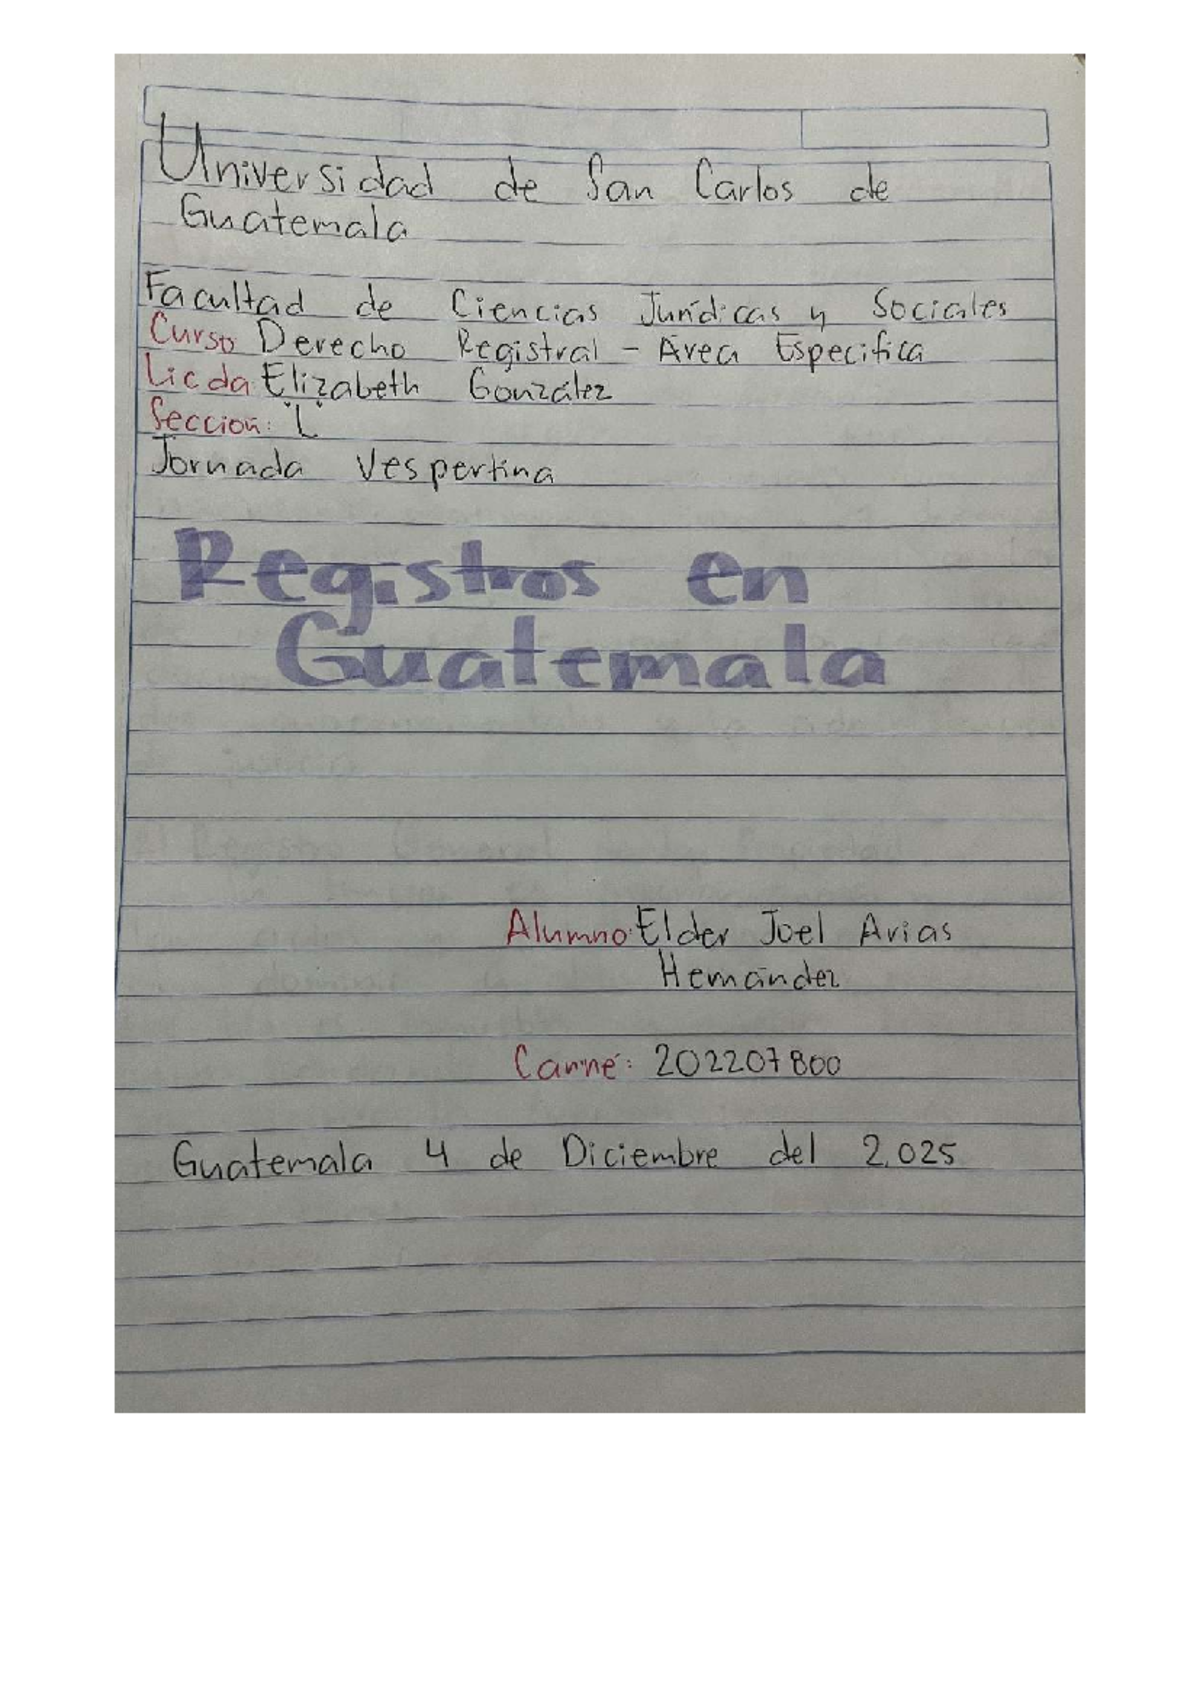 Universidad de San Carlos de
Guatemala
Facultad de Ciencias Jurídicas y Sociales
Curso Derecho Registral - Área Especifica
Licda Elizabeth González
Sección: "L"
Jornada Vespertina
Registros en
Guatemala
Alumno: Elder Joel Arias
Hernández
Carné: 202207800
Guatemala 4 de Diciembre del 2,025